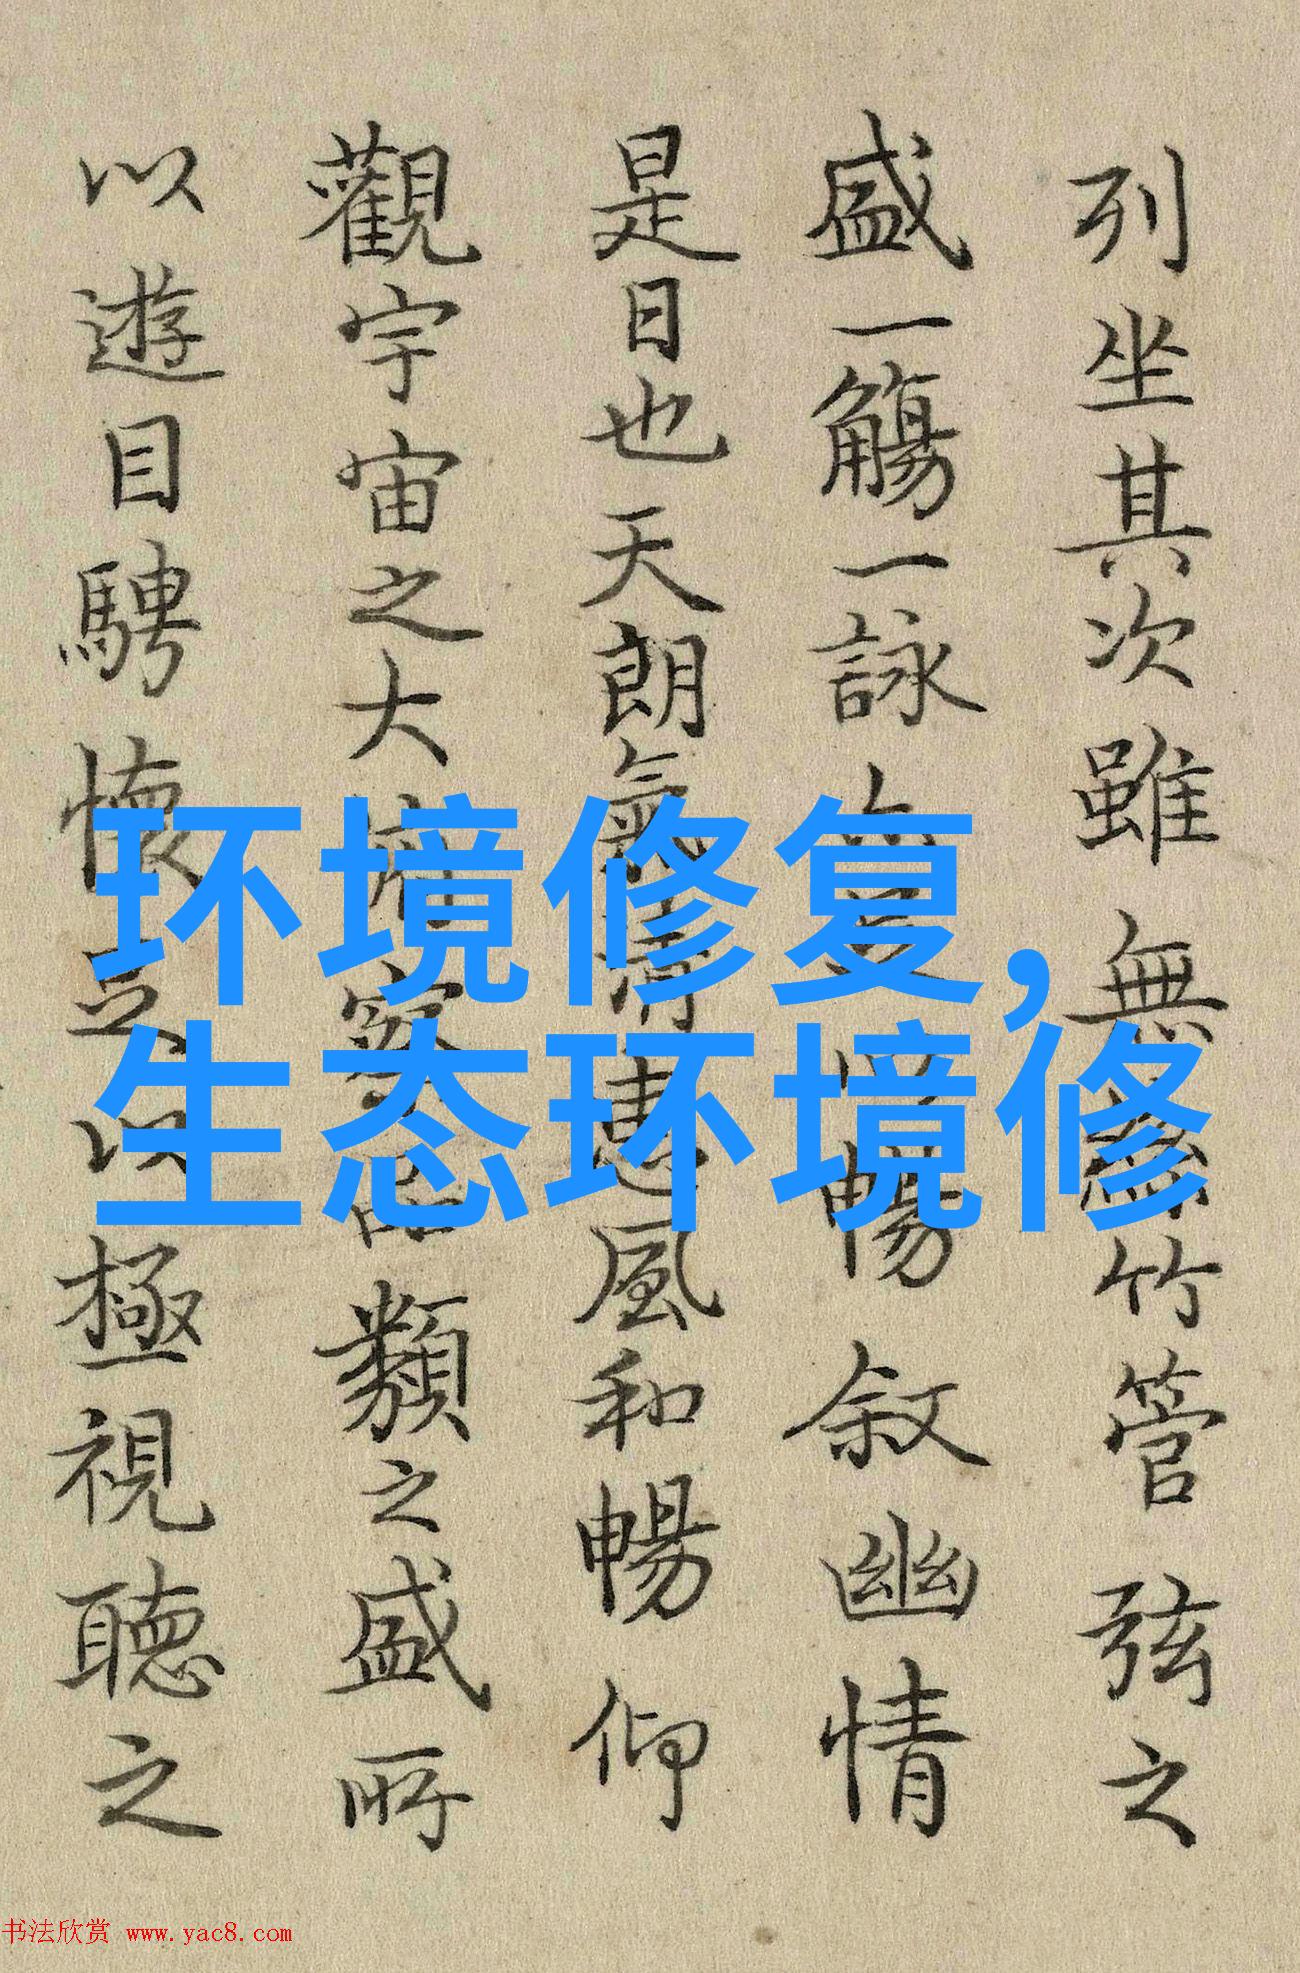 列坐其次雖無絲竹管弦之
盛一觴一詠暢叙幽情
是日也天朗氣清惠風和暢仰
觀宇宙之大俯察品類之盛所
以遊目騁懷足以極視聽之
环境修复,
生态环境修
书法欣赏 www.yac8.com